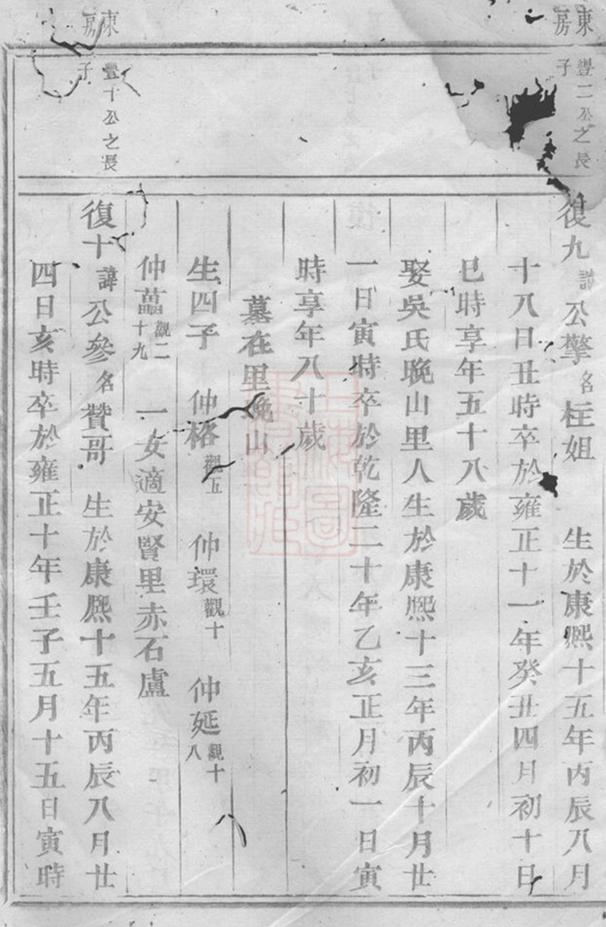 東房
豐二公之長子
復九諱公擎名枉姐 生於康熙十五年丙辰八月
十八日丑時卒於雍正十一年癸丑四月初十日
巳時享年五十八歲
娶吳氏晚山里人生於康熙十三年丙辰十月廿
一日寅時卒於乾隆二十年乙亥正月初一日寅
時享年八十歲
墓在里晚山
生四子 仲格觀五 仲環觀十 仲延觀十八
仲藟觀二十九 一女適安賢里赤石盧
東房
豐十公之長子
復十諱公參名贊哥 生於康熙十五年丙辰八月廿
四日亥時卒於雍正十年壬子五月十五日寅時